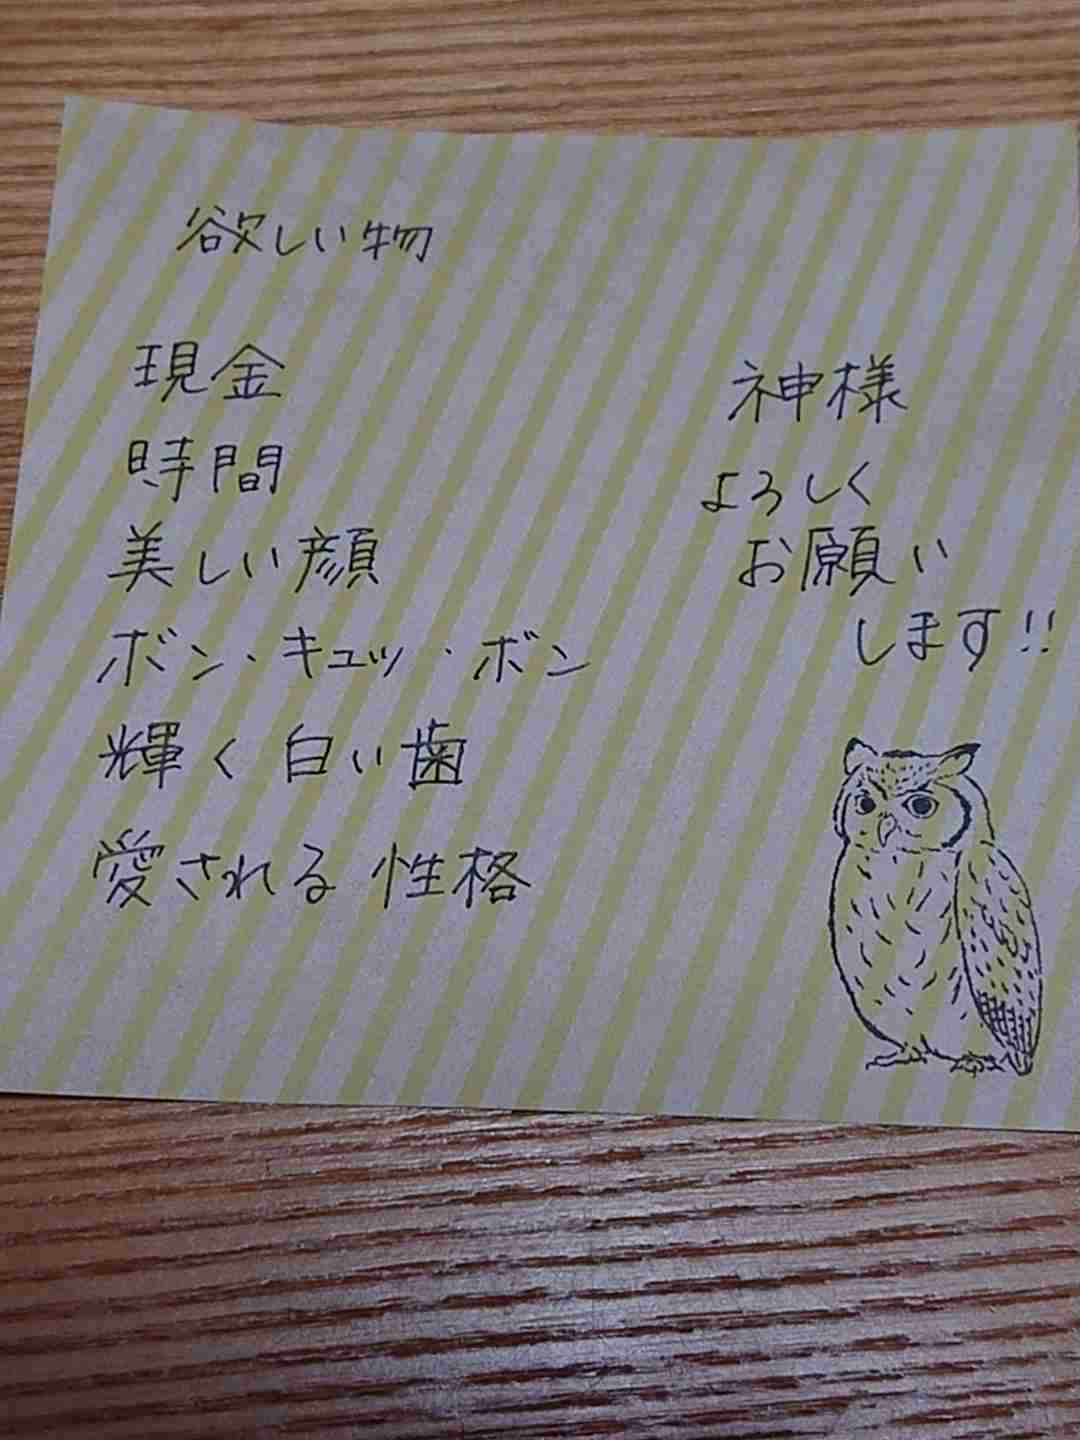 欲しい物
現金
時間
美しい顔
ボン・キュッ・ボン
輝く白い歯
愛される性格
神様
よろしく
お願い
します!!